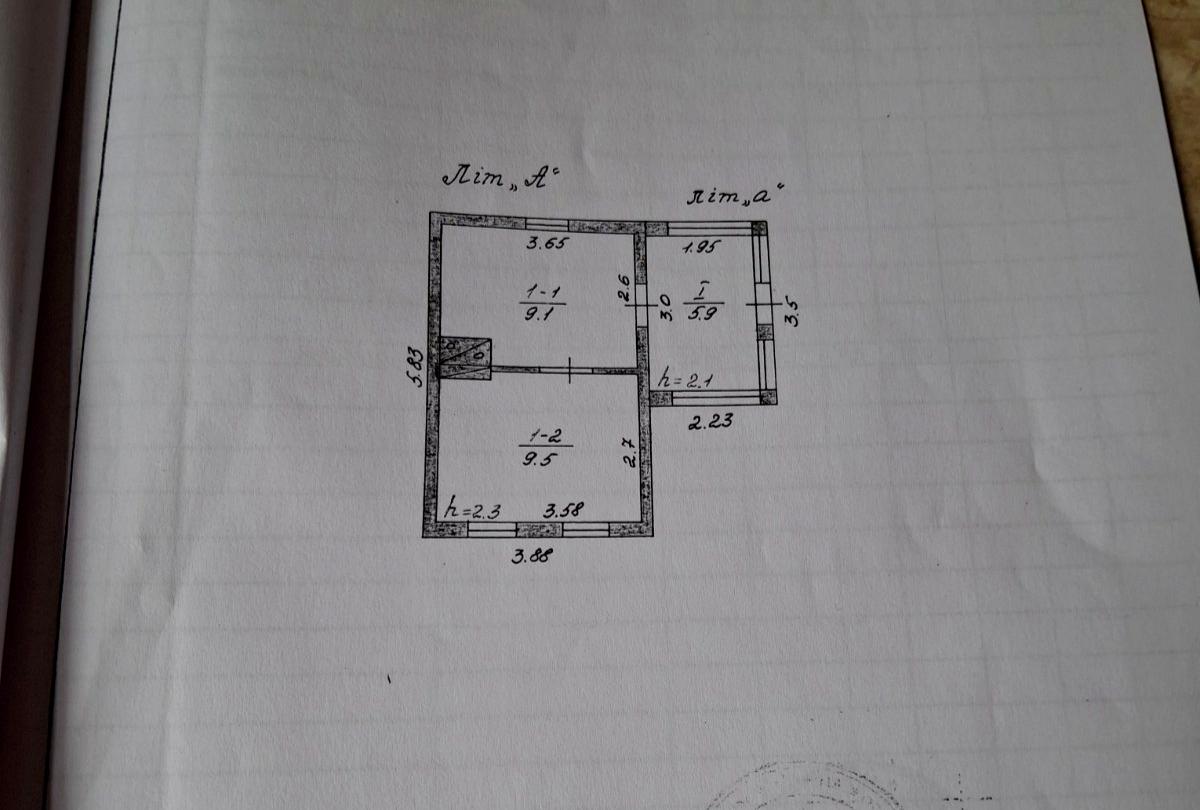 Літ „А“
літ „а“
3.65
1.95
1-1
9.1
2.6
3.0
I
5.9
3.5
5.83
h=2.1
2.23
1-2
9.5
2.7
h=2.3
3.58
3.88